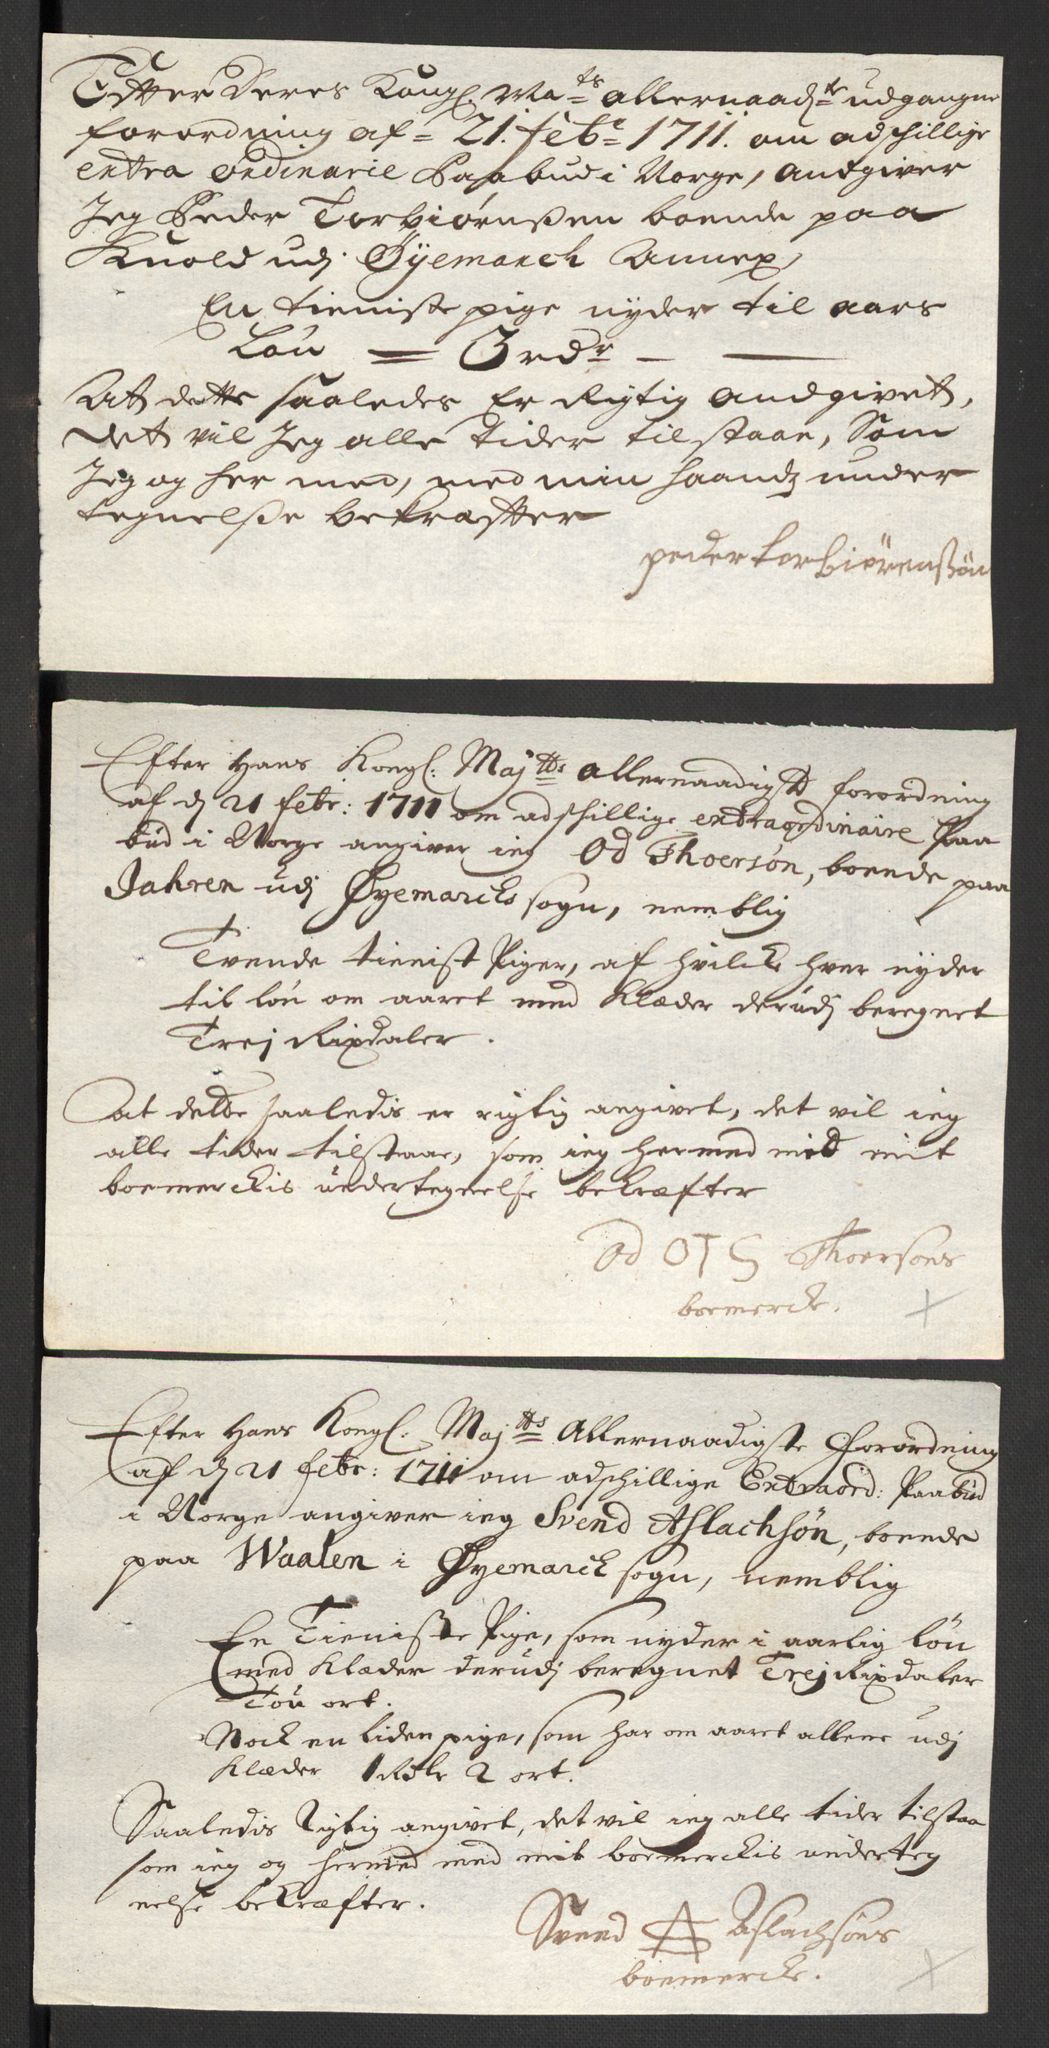 Efter Deres Kongl. Ma=ts allernaad=ste udgangne
forordning af= 21. feb=r 1711. om adschillige
extra ordinarie Paabud i Norge, andgiver
Jeg Peder Torbiørnßen boende paa
Kuold udj. Øÿemarch Annex,
En tieniste pige nyder til aars
Løn = 3 rdr —
At dette saaledes Er Rigtig andgivet,
det vil Jeg alle tider tilstaae, Som
Jeg og her med, med min haandz under
tegnelße bekræfter
peder torbiörenßön
Efter Hans Kongl: Maj=tts allernaadigste forordning
af d 21 febr: 1711 om adschillige extraordinaire Paa
bud i Norge angiver ieg Od Thoersøn, boende paa
Jahren udj Øyemarcks sogn, nemblig
Tvende tienist Piger, af hvilcke hver nyder
til løn om aaret med Klæder derudj beregnet
Trej Rixdaler.
At dette saaledis er rigtig angivet, det vil ieg
alle tider tilstaae, som ieg hermed med mit
boemerckis undertegnelse bekræfter
Od OTS Thoersøns
boemercke.
Efter Hans Kongl. Maj=tts Allernaadigste Forordning
af d 21 febr: 1711 om adschillige Extraord: Paabud
i Norge angiver ieg Svend Aslachsøn, boende
paa Waalen i Øyemarck sogn, nemblig
En Tieniste Pige, som nyder i aarlig løn
med Klæder derudj beregnet Trej Rixdaler
Tou ort.
Nock en liden pige, som har om aaret allene udj
Klæder 1 Rdlr 2 ort.
Saaledis Rigtig angivet, det vil ieg alle tider tilstaa
som ieg og hermed med mit boemerckis underteg
nelse bekræfter.
Svend A Aslachsøns
boemercke.